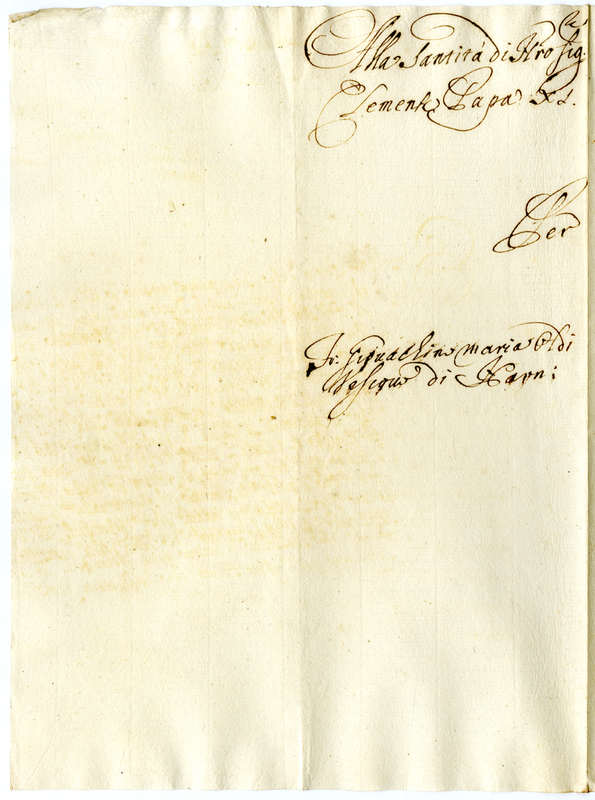 Alla Santità di Nro Sig.re
Clemente Papa XI.
Per
Fr. Gioacchino Maria Oldi
Vescovo di